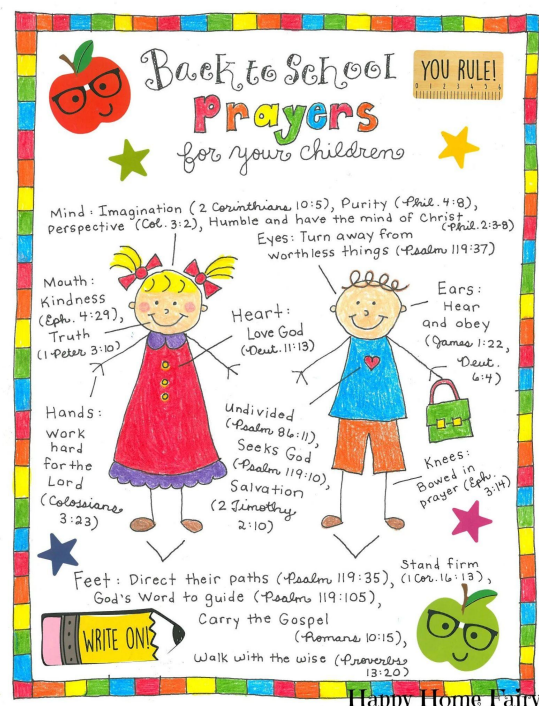 Back to School
YOU RULE!
0 1 2 3 4 5 6
Prayers
for your children
Mind: Imagination (2 Corinthians 10:5), Purity (Phil. 4:8),
perspective (Col. 3:2), Humble and have the mind of Christ
(Phil. 2:3-8)
Eyes: Turn away from
worthless things (Psalm 119:37)
Mouth:
Kindness
(Eph. 4:29),
Truth
(1 Peter 3:10)
Heart:
Love God
(Deut. 11:13)
Ears:
Hear
and obey
(James 1:22,
Deut.
6:4)
Hands:
Work
hard
for the
Lord
(Colossians
3:23)
Undivided
(Psalm 86:11),
Seeks God
(Psalm 119:10),
Salvation
(2 Timothy
2:10)
Knees:
Bowed in
prayer (Eph.
3:14)
Feet: Direct their paths (Psalm 119:35),
Stand firm
(1 Cor. 16:13),
God's Word to guide (Psalm 119:105),
Carry the Gospel
(Romans 10:15),
Walk with the wise (Proverbs
13:20)
WRITE ON!
Happy Home Fairy